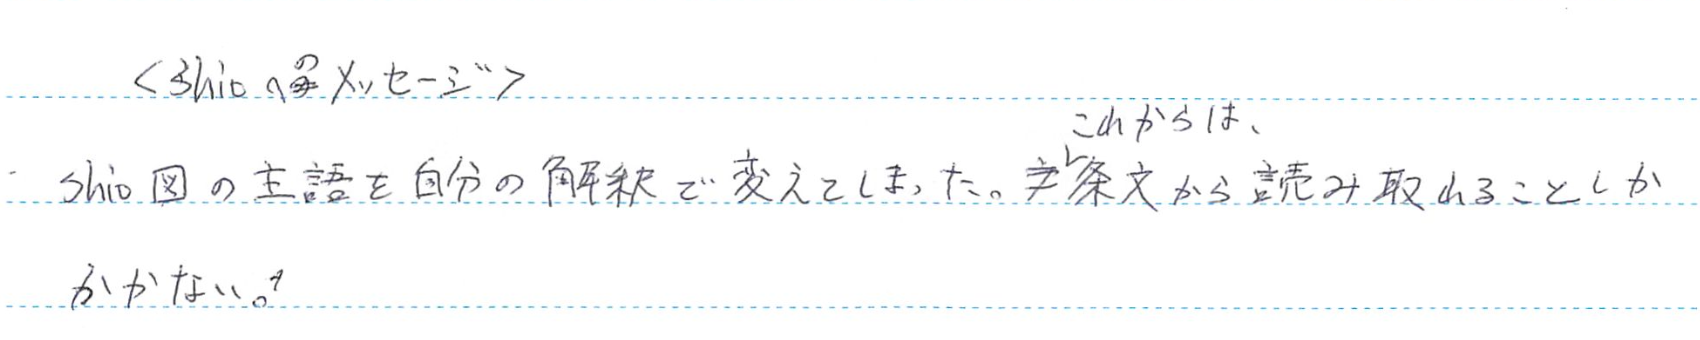 <Shioへのメッセージ>
これからは、
・Shio図の主語を自分の解釈で変えてしまった。条文から読み取れることしか
かかない。